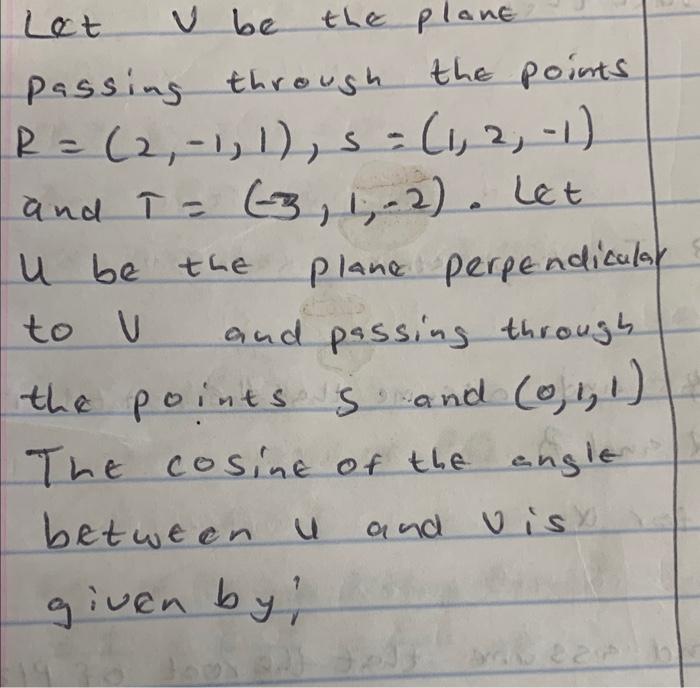 Let V be the plane
passing through the points
R = (2, -1, 1), S = (1, 2, -1)
and T = (-3, 1, -2). Let
U be the plane perpendicular
to V and passing through
the points S and (0, 1, 1)
The cosine of the angle
between U and V is
given by;